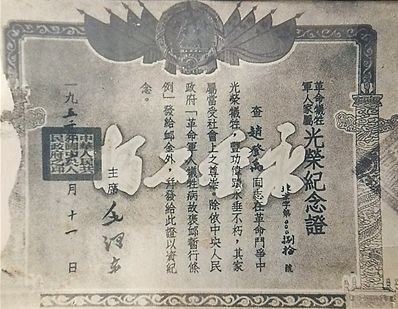 革命犧牲
軍人家屬
光榮紀念證
北 字第〇〇捌拾號
查趙登禹同志在革命鬥爭中
光榮犧牲，豐功偉蹟永垂不朽，其家
屬當受社會上之尊崇。除依中央人民
政府「革命軍人犧牲病故褒卹暫行條
例」發給卹金外，并發給此證以資紀
念。
主席 毛澤東
一九五 月十一日
中華人民共
和國中央人
民政府之印
永垂不朽